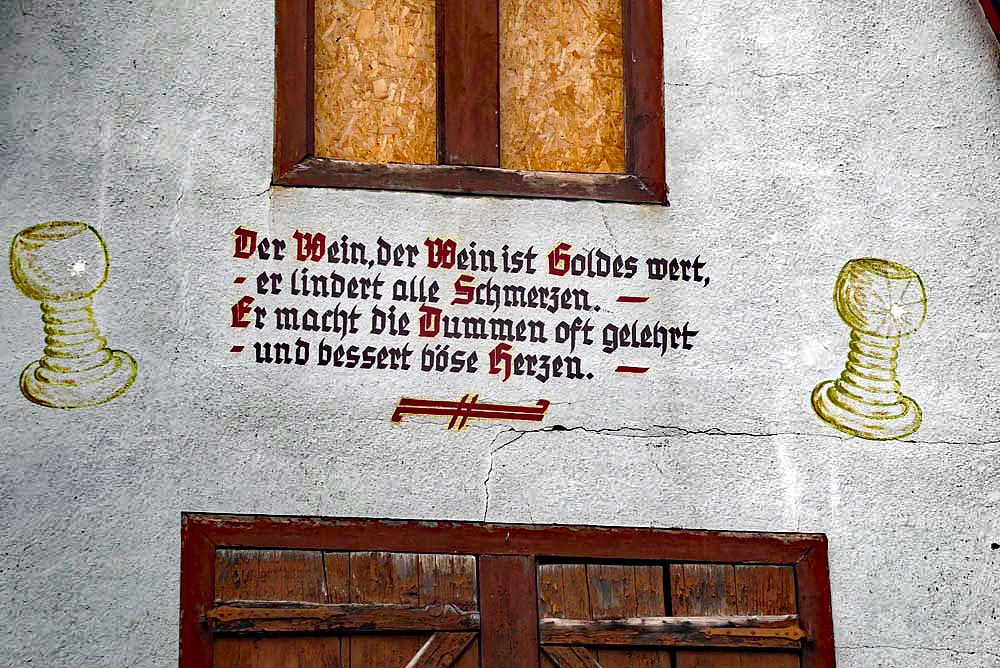 Der Wein, der Wein ist Goldes wert,
- er lindert alle Schmerzen. -
Er macht die Dummen oft gelehrt
- und bessert böse Herzen. -